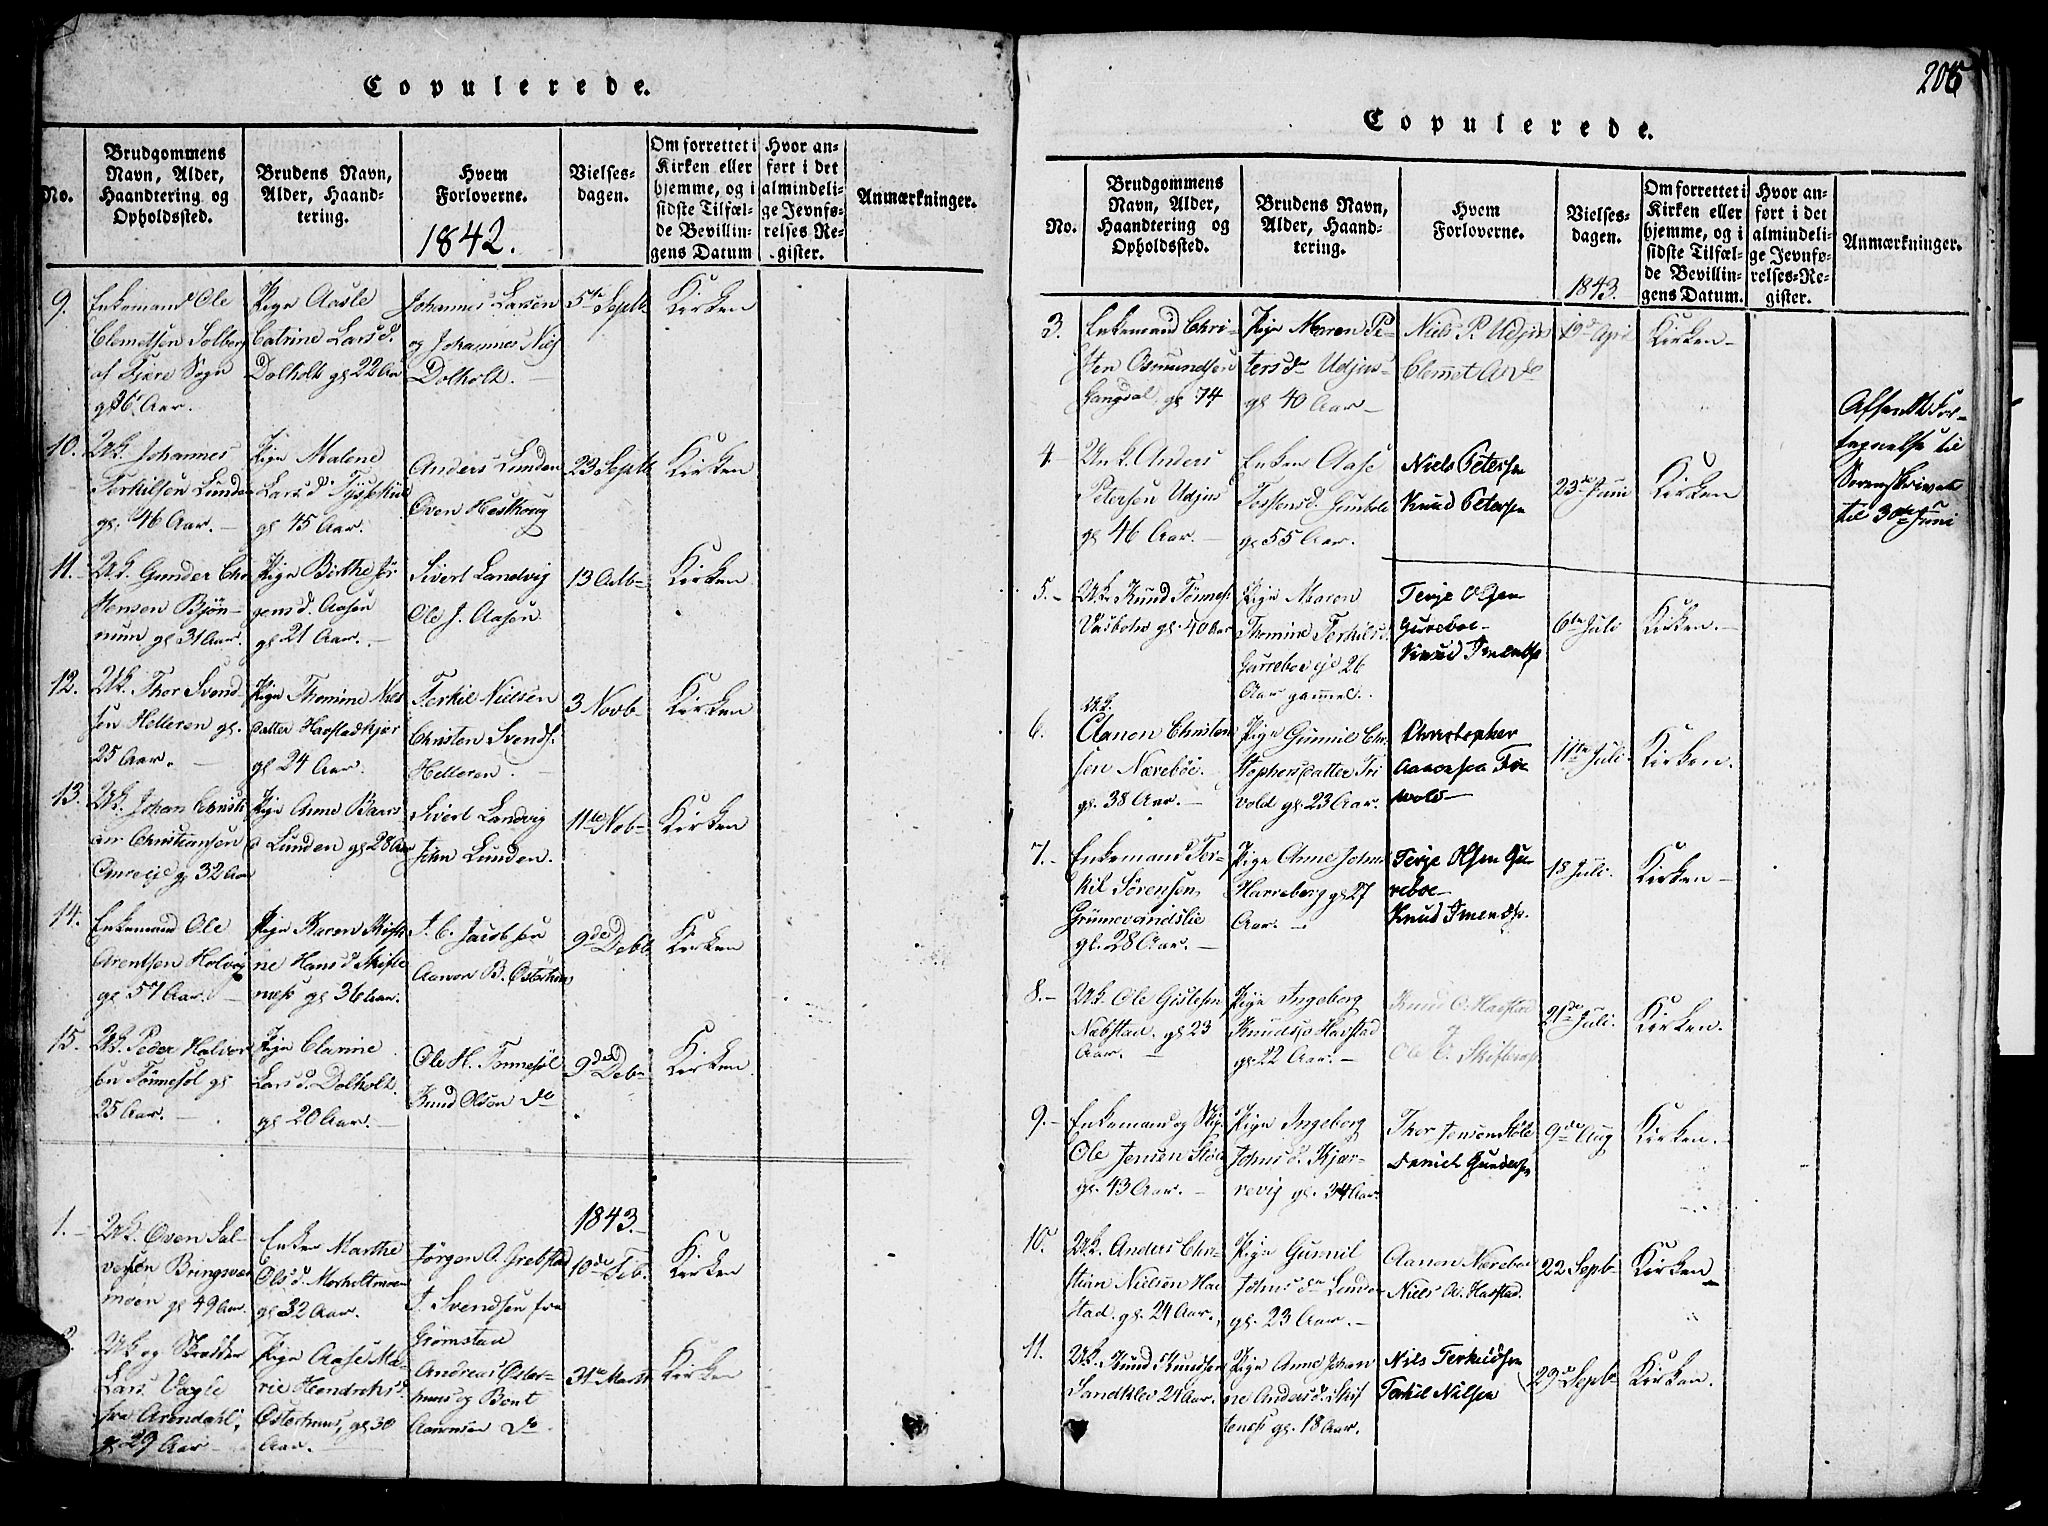 Copulerede.
No.
Brudgommens Navn, Alder, Haandtering og Opholdssted.
Brudens Navn, Alder, Haandtering.
Hvem Forloverne.
1842.
Vielsesdagen.
Om forrettet i Kirken eller hjemme, og i sidste Tilfælde Bevillingens Datum
Hvor anført i det almindelige Jevnførelses Register.
Anmærkninger.
9.
Enkemand Ole
Clemetsen Solberg
af Fjære Sogn
gl 36 Aar.
Pige Aasle
Catrine Larsd.
Dolholt gl 22 Aar
Johannes Larsen
og Johannes Niels
Dolholt.
5te Septb
Kirken
10.
Uk. Johannes
Terkilsen Lunden
gl. 46 Aar.
Pige Malene
Larsd
gl 45 Aar.
Anders Lunden
Oven
23 Septb
Kirken
11.
Uk. Gunder Chri
stensen Bjön-
num gl 31 Aar.
Pige Birthe Jör
gensd. Aasen
gl 21 Aar.
Sivert Landvig
Ole J. Aasen.
13 Octb
Kirken
12.
Uk. Thor Svend
sen Helleren gl.
25 Aar.
Pige Thomine Niels
datter Havstadkjær
gl 24 Aar.
Terkil Nielsen
Christen Svends.
Helleren.
3 Novb
Kirken
13.
Uk. Johan Christi
an Christiansen
gl 32 Aar
Pige Anne Baars
d Lunden gl 28 Aar
Sivert Landvig
John Lunden.
11te Nob
Kirken
14.
Enkemand Ole
Arentsen Holvig
gl 57 Aar.
Pige Karen Kisti
ne Hansd Skifte
næs gl 36 Aar.
J. C. Jacobsen
Aanon B. Österhus
9de Debb
Kirken
15.
Uk. Peder Halvor
sen Tönnesöl gl
25 Aar.
Pige Clarine
Larsd. Dolholt.
gl 20 Aar.
Ole H. Tönnesöl
Knud Olsen do
9de Deb
Kirken
1843.
1.
Uk. Oven Sal-
vesen Bringsvær
moen gl 49 Aar.
Enke Marthe
Olsd. Morholtmoen
gl 32 Aar.
Jörgen O. Grebstad
J. Svendsen fra
Grömstad
10de Feb.
Kirken
2.
Uk og Skrædder
Lars Vagle
fra Arendahl,
gl 29 Aar
Pige Aase Ma-
rie Hendriksd.
Österhuus, gl 30
Aar.
Andreas Öster-
huus og Bent
Aanonsen do
31te Marts
Kirken
205
Copulerede.
No.
Brudgommens Navn, Alder, Haandtering og Opholdssted.
Brudens Navn, Alder, Haandtering.
Hvem Forloverne.
Vielsesdagen.
1843.
Om forrettet i Kirken eller hjemme, og i sidste Tilfælde Bevillingens Datum.
Hvor anført i det almindelige Jevnførelses-Register.
Anmærkninger.
3.
Enkemand Chri-
sten Osmundsen
gl 74
Pige Maren Pe-
tersdr Udjus
gl 40 Aar
Niels P. Udjus
Clemet A do
19de April
Kirken
4
Un k. Anders
Petersen Udjus
gl 46 Aar.
Enken Aase
Tostensd.
gl 55 Aar.
Niels Petersen
Knud Petersen
23de Juni
Kirken
Afsendt For-
tegnelse til
Sorenskriveren
til 30te Juni
5.
Uk. Knud Tönnes
gl. 40 Aar
Pige Maren
Thomine Terkilsd.
26
Aar gammel.
Terje Olsen
Gureboe
Knud
6te Juli
Kirken
6.
Uk.
Aanon Christen
sen Næreböe
gl. 38 Aar.
Pige Gunnil Chri
stophersdatter Tri
vold gl. 23 Aar.
Christopher
Aanonsen Tri
vold
11te Juli
Kirken.
7.
Enkemand Ter-
kil Sörensen
Grömevandslie
gl. 28 Aar.
Pige Anne Johns
gl 27
Aar.
Terje Olsen Gu-
reboe
Knud
18 Juli.
Kirken
8.
Uk. Ole Gislesen
Nabstad. gl 23
Aar.
Pige Ingeborg
Knudsd Havstad
gl 22 Aar.
Knud O. Havstad
Ole C. Skiftenæs
21de Juli.
Kirken.
9.
Enkemand og
Ole Jensen Stöle
gl. 43 Aar.
Pige Ingeborg
Johnsd. Kjær-
revig gl. 34 Aar.
Thor Jensen Stöle
Daniel Gundersen
9de Aug
Kirken.
10.
Uk. Anders Chri-
stian Nielsen Hav
stad. gl. 24 Aar.
Pige Gunnil
Johnsdr Lunden
gl. 23 Aar.
Aanon Nærebö
Niels A. Havstad.
22 Septb
Kirken
11.
Uk. Knud Knudsen
Sandklev 24 Aar.
Pige Anne Johan
ne Andersd. Skif
tenæs gl. 18 Aar.
Niels Terkildsen
Terkil Nilsen
29de Septb
Kirken.